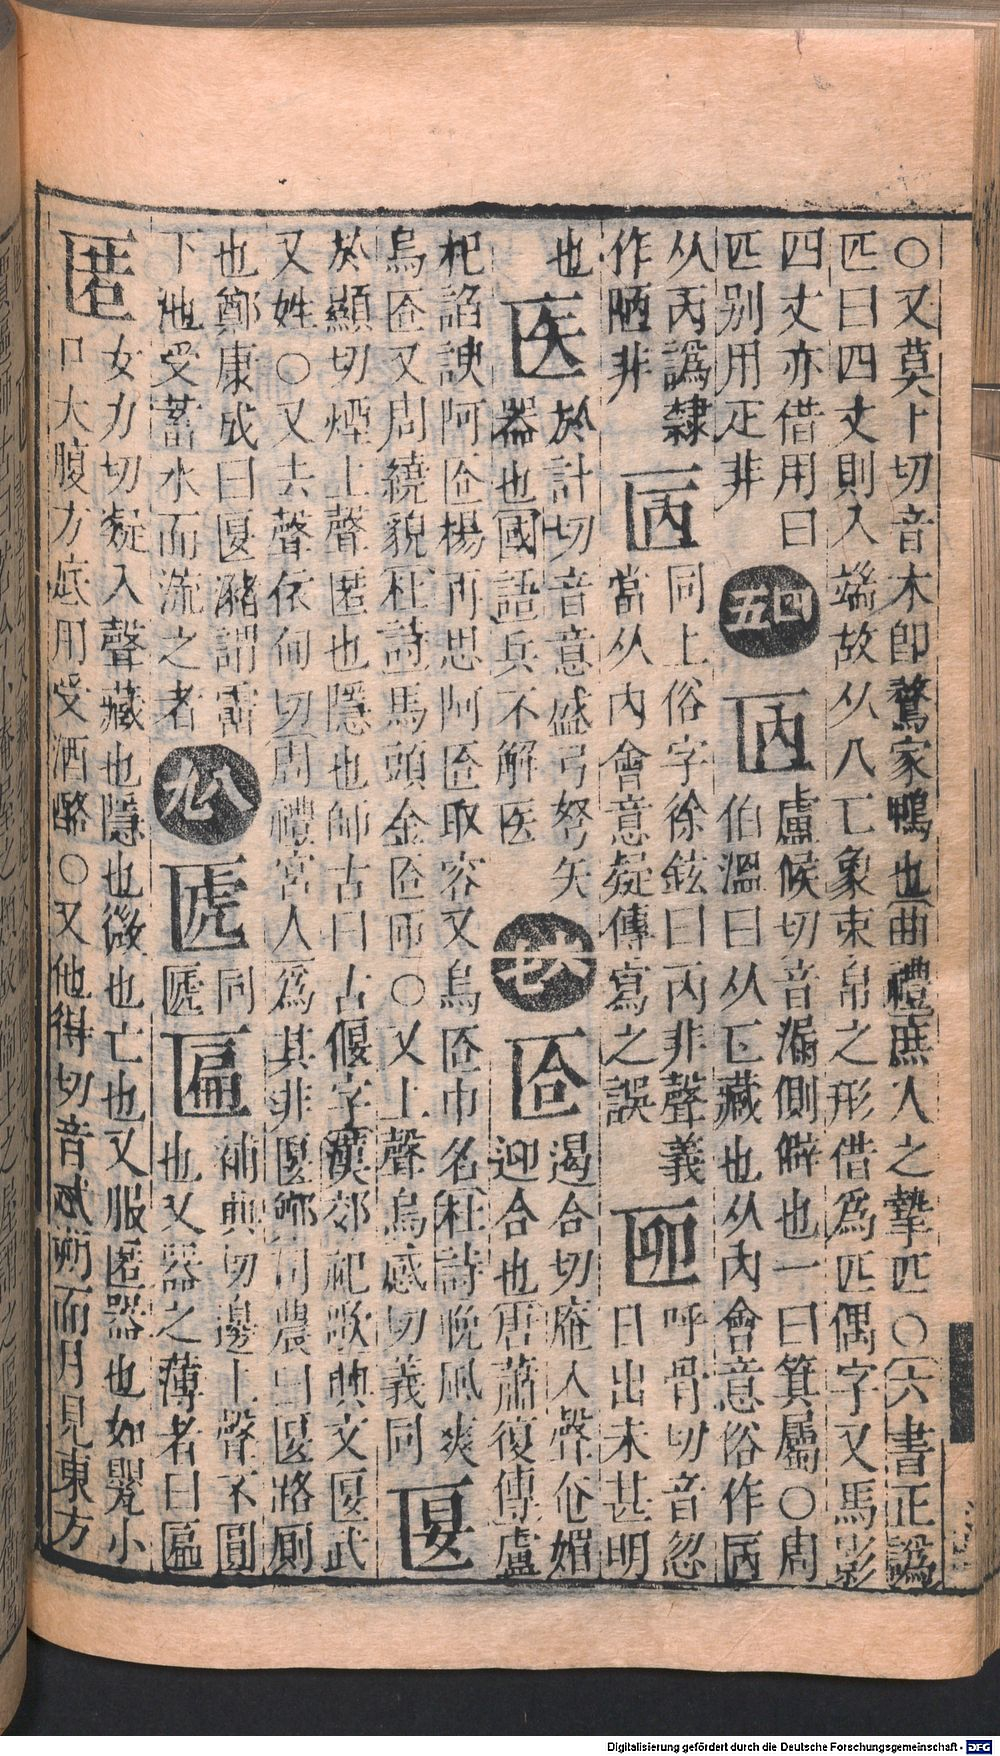 ○又莫卜切音木即鶩家鴨也曲禮庶人之摯匹○六書正譌
匹曰四丈則入端故从八匸象束帛之形借為匹偶字又馬影
四丈亦借用曰
匹别用疋非
四五
㔷
盧候切音漏側僻也一曰箕屬○周
伯溫曰从匸藏也从內會意俗作㔷
从丙譌隸
作陋非
㔷
同上俗字徐鉉曰丙非聲義
當从內會意疑傳寫之誤
呼骨切音忽
日出未甚明
也
医
於計切音意盛弓弩矢
器也國語兵不解医
六七
匼
遏合切庵入聲匼媚
迎合也唐蕭復傳盧
杞諂諛阿匼楊再思阿匼取容又烏匼巾名杜詩晚風爽
烏匼又周繞貌杜詩馬頭金匼匝○又上聲烏感切義同
匽
於顯切煙上聲匿也隱也師古曰古偃字漢郊祀歌興文匽武
又姓○又去聲依甸切周禮宮人為其井匽鄭司農曰匽路厠
也鄭康成曰匽豬謂霤
下池受蓄水而流之者
八九
同
匾
補典切邊上聲不圓
也又器之薄者曰匾
匿
女力切疑入聲藏也隱也微也亡也又服匿器也如甖小
口大腹方底用受酒酪○又他得切音忒朔而月見東方
Digitalisierung gefördert durch die Deutsche Forschungsgemeinschaft - DFG